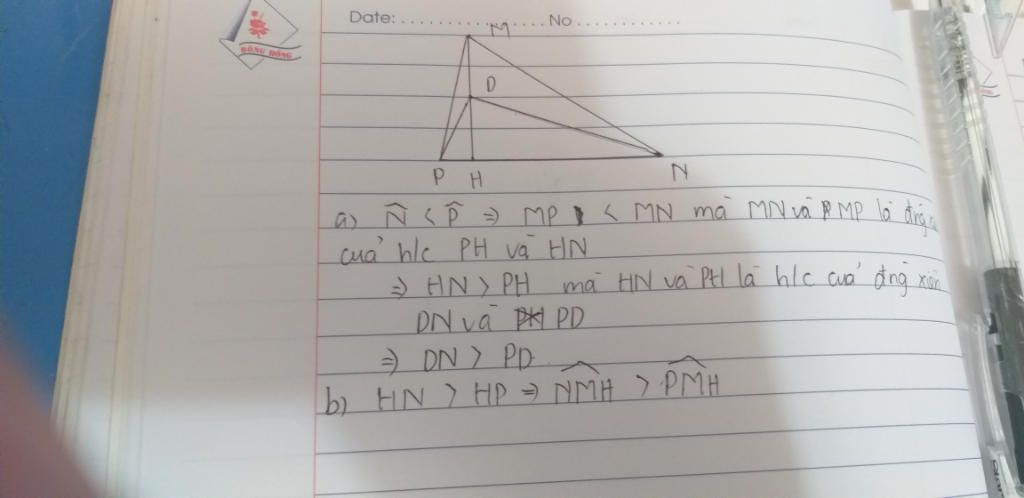 HỒNG ĐĂNG
Date: .................... No ................
M
D
P H N
a) N̂ < P̂ ⇒ MP < MN mà MN và MP là đng
của h/c PH và HN
⇒ HN > PH mà HN và PH là h/c của đng xiên
DN và PD
⇒ DN > PD
b) HN > HP ⇒ NM̂H > PM̂H